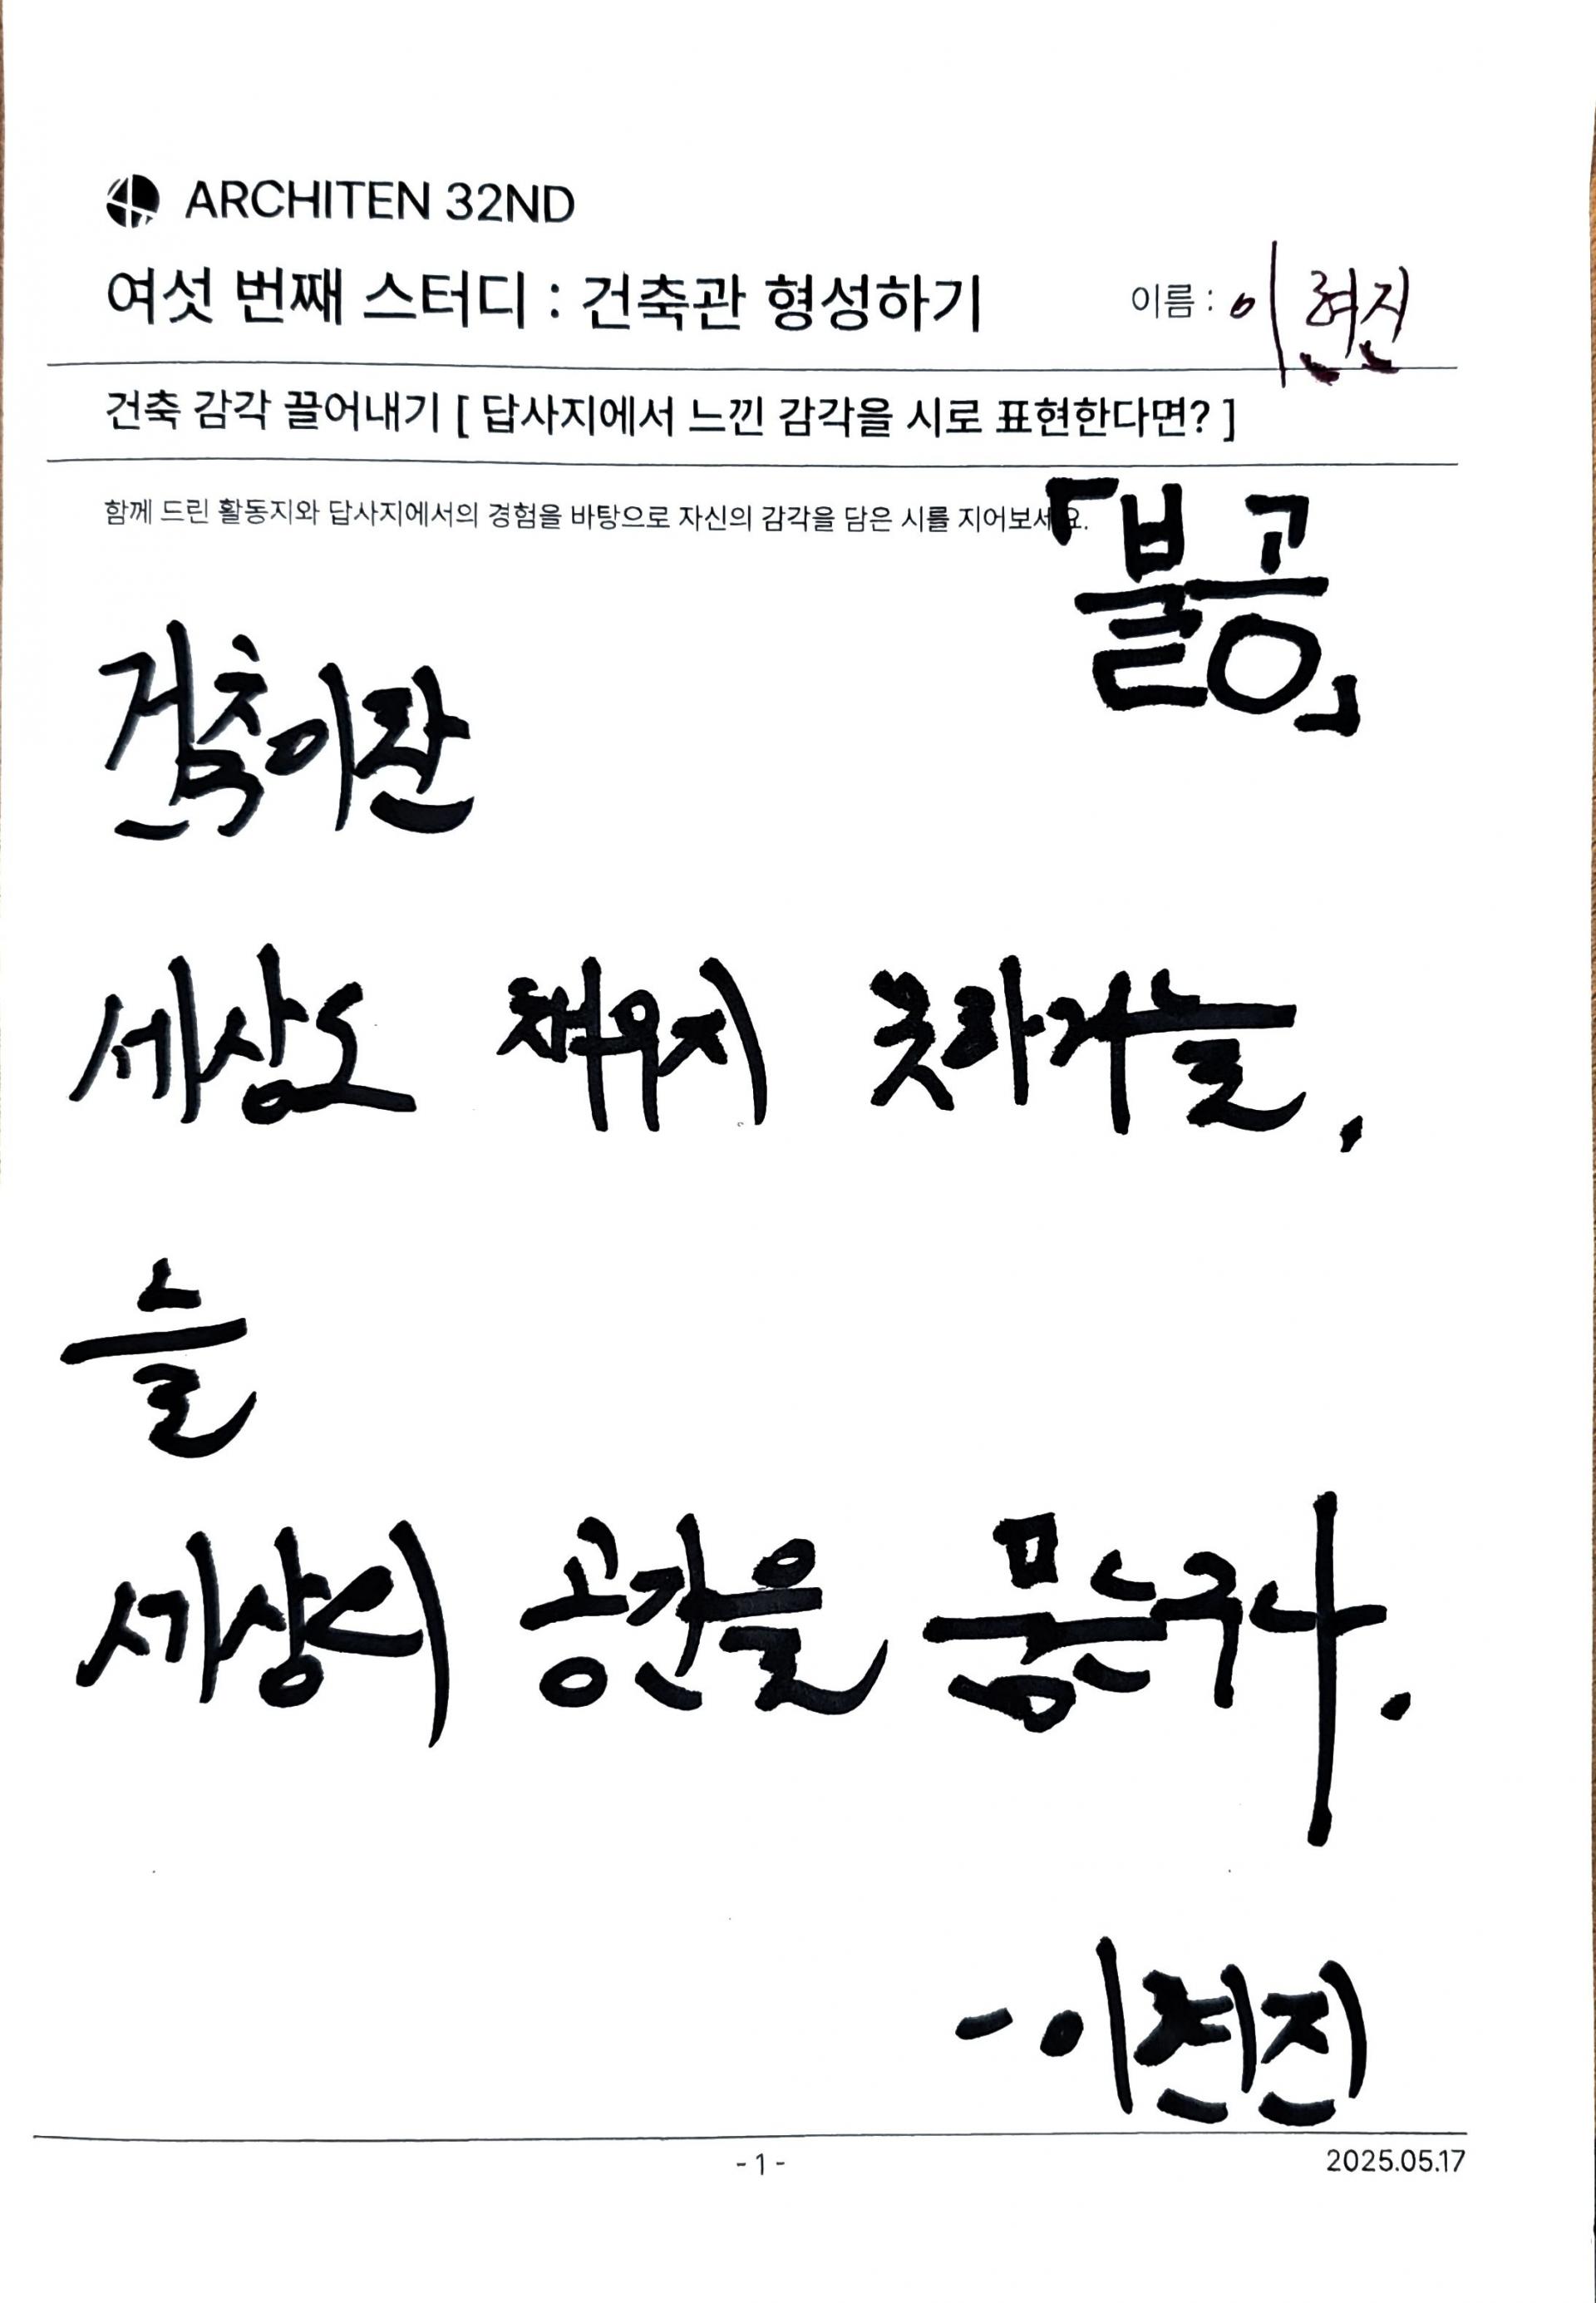 ARCHITEN 32ND
여섯 번째 스터디 : 건축관 형성하기
이름 : 이현진
건축 감각 끌어내기 [ 답사지에서 느낀 감각을 시로 표현한다면? ]
함께 드린 활동지와 답사지에서의 경험을 바탕으로 자신의 감각을 담은 시를 지어보세요.
「불공」
건축이란
세상도 채우지 못하거늘,
늘
세상의 공간을 품는구나.
- 이현진
- 1 -
2025.05.17